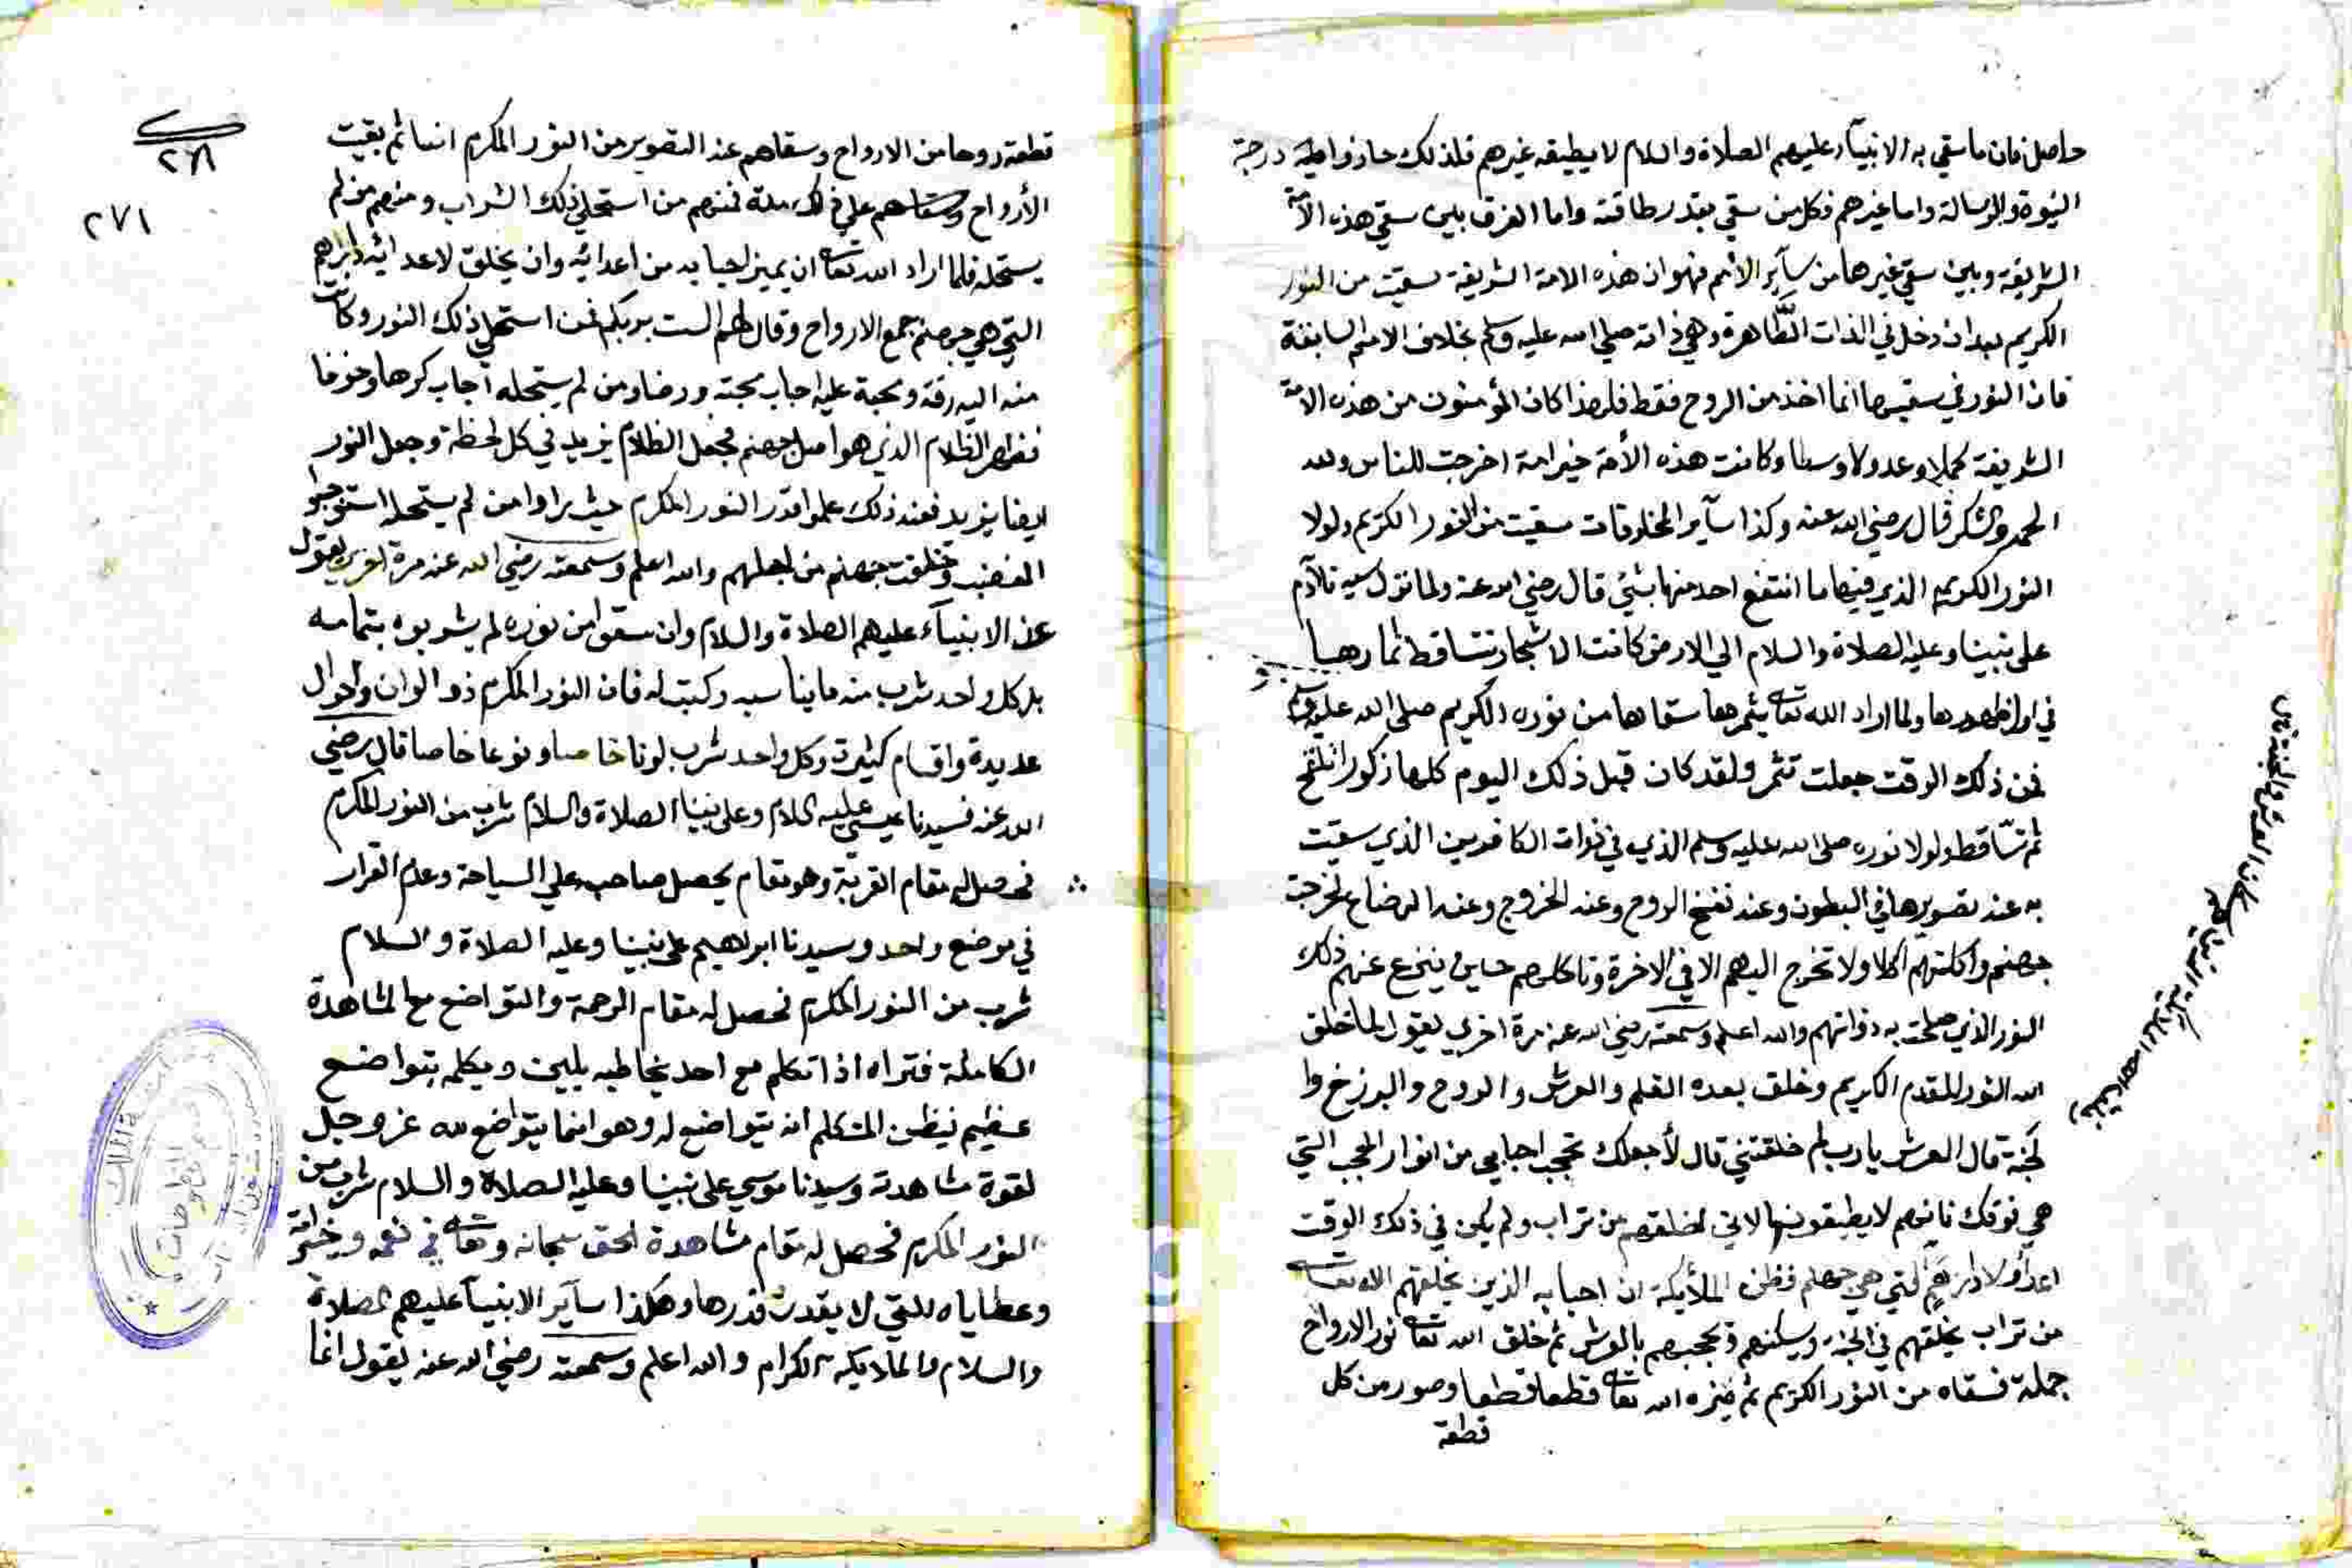 حاصل فان ما سقي به الانبيآء عليهم الصلاة والسلام لا يطيقه غيرهم فلذلك حازوا درجة
النبوة والرسالة واما غيرهم فكل من سقي بقدر طاقته واما الفرق بين سقي هذه الامة
الشريفة وبين سقي غيرها من سآير الأمم فهو ان هذه الامة الشريفة سقيت من النور
الكريم بعد ان دخل في الذات الطاهرة وهي ذاته صلي الله عليه وسلم بخلاف الامم السابقة
فان النور في سقيها انما اخذ من الروح فقط فلهذا كان المؤمنون من هذه الامة
الشريفة كملا وعدولا وسطا وكانت هذه الأمة خير امة اخرجت للناس ولله
الحمد والشكر قال رضي الله عنه وكذا سآير المخلوقات سقيت من النور الكريم ولولا
النور الكريم الذي فيها ما انتفع احد منها بشئ قال رضي الله عنه ولما نزل سيدنا آدم
على نبينا وعليه الصلاة والسلام الي الارض كانت الاشجار تتساقط ثمارها
في اول ظهورها ولما اراد الله تعالى يثمرها سقاها من نوره الكريم صلى الله عليه وسلم
فمن ذلك الوقت جعلت تثمر ولقد كان قبل ذلك اليوم كلها ذكورا تلقح
ثم تتساقط ولولا نوره صلى الله عليه وسلم الذي في ذوات الكافرين الذي سقيت
به عند تصويرها في البطون وعند نفخ الروح وعند الخروج وعند الرضاع لخرجت
جهنم واكلتهم اكلا ولا تخرج اليهم الا في الاخرة وتاكلهم حين ينزع عنهم ذلك
النور الذي صلحت به ذواتهم والله اعلم وسمعته رضي الله عنه مرة اخري يقول لما خلق
الله النور المقدم الكريم وخلق بعده القلم والعرش والروح والبرزخ وا
لجنة قال العرش يا رب لم خلقتني قال لأجعلك تحجب احبابي من انوار الحجب التي
هي فوقك فانهم لا يطيقونها لاني اخلقهم من تراب ولم يكن في ذلك الوقت
اعدآء ولا دارهم التي هي جهنم فظن الملأيكة ان احبابه الذين يخلقهم الله تعالى
من تراب يخلقهم في الجنة ويسكنهم ويحجبهم بالعرش ثم خلق الله تعالى نور الارواح
جملة فسقاه من النور الكريم ثم ميزه الله تعالى قطعا قطعا وصور من كل
قطعة
قطعة روحا من الارواح وسقاهم عند التصوير من النور المكرم ايضا ثم بقيت
الأرواح على ذلك مدة فمنهم من استحلي ذلك الشراب ومنهم من لم
يستحله فلما اراد الله تعالى ان يميز احبابه من اعدائه وان يخلق لاعدائه دارهم
التي هي جهنم جمع الارواح وقال لهم الست بربكم فمن استحلي ذلك النور وكانت
منه اليه رقة ومحبة عليه اجاب محبة ورضا ومن لم يستحله اجاب كرها وخوفا
فظهر الظلام الذي هو اصل جهنم فجعل الظلام يزيد في كل لحظة وجعل النور
ايضا يزيد فعند ذلك علموا قدر النور المكرم حيث راوا من لم يستحله استوجبوا
الغضب وخلقت جهنم من اجلهم والله اعلم وسمعته رضي الله عنه مرة اخري يقول
عن الانبيآء عليهم الصلاة والسلام وان سقوا من نوره لم يشربوه بتمامه
بل كل واحد شرب منه ما يناسبه وكتب له فان النور المكرم ذو الوان واحوال
عديدة واقسام كثيرة وكل واحد شرب لونا خاصا ونوعا خاصا قال رضي
الله عنه فسيدنا عيسي عليه السلام وعلى نبينا الصلاة والسلام شرب من النور المكرم
فحصل له مقام الغربة وهو مقام يحصل صاحبه علي السياحة وعدم القرار
في موضع واحد وسيدنا ابراهيم على نبينا وعليه الصلاة والسلام
شرب من النور المكرم فحصل له مقام الرحمة والتواضع مع المشاهدة
الكاملة فتراه اذا تكلم مع احد يخاطبه بلين ويكلمه بتواضع
عظيم فيظن المتكلم انه يتواضع له وهو انما يتواضع لله عز وجل
لقوة مشاهدته وسيدنا موسي على نبينا وعليه الصلاة والسلام شرب من
النور المكرم فحصل له مقام مشاهدة الحق سبحانه وتعالى في نعمه وخيراته
وعطاياه التي لا يقدر قدرها وهكذا سآير الانبيآ عليهم الصلاة
والسلام والملايكة الكرام والله اعلم وسمعته رضي الله عنه يقول انما
٢٧١